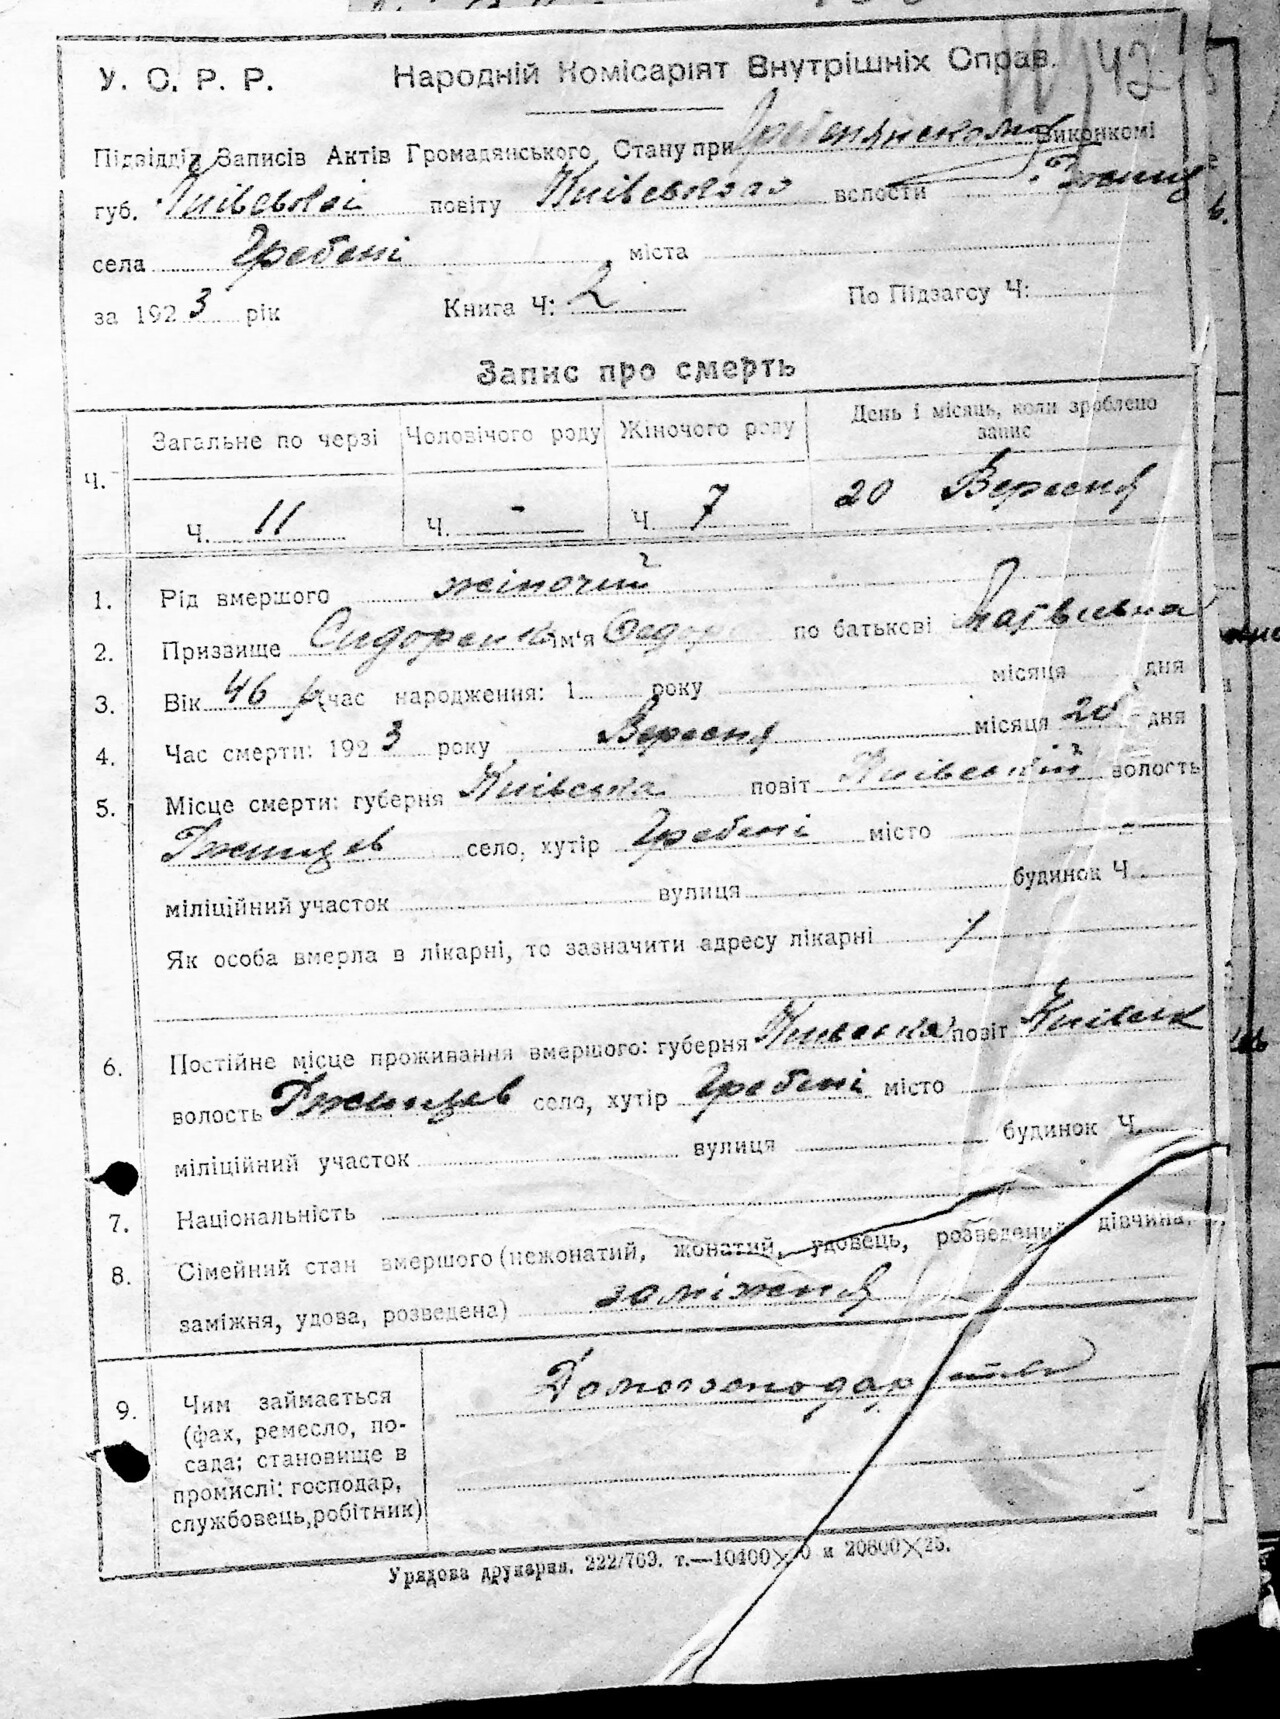 У. С. Р. Р. Народній Комісаріят Внутрішніх Справ.
Підвідділ Записів Актів Громадянського Стану при Гребенянському Виконкомі
губ. Київської повіту Київського волости
села Гребені міста
за 1923 рік Книга Ч: 2 По Підзагсу Ч:
Запис про смерть
Ч. Загальне по черзі Чоловічого роду Жіночого роду День і місяць, коли зроблено запис
Ч. 11 Ч. - Ч. 7 20 Вересня
1. Рід вмершого жіночий
2. Призвище Сидоренко ім'я Федора по батькові Матвієвна
3. Вік 46 р. час народження: 1 року місяця дня
4. Час смерти: 1923 року Вересня місяця 20 дня
5. Місце смерти: губерня Київська повіт Київський волость
Ржищев село, хутір Гребені місто -
міліційний участок вулиця будинок Ч.
Як особа вмерла в лікарні, то зазначити адресу лікарні /
6. Постійне місце проживання вмершого: губерня Київська повіт Київськ
волость Ржищев село, хутір Гребені місто
міліційний участок вулиця будинок Ч.
7. Національність
8. Сімейний стан вмершого (нежонатий, жонатий, удовець, розведений, дівчина,
заміжня, удова, розведена) заміжня
9. Чим займається
(фах, ремесло, по-
сада; становище в
промислі: господар,
службовець, робітник)
Домогосподарство
Урядова друкарня. 222/769. т.—10400